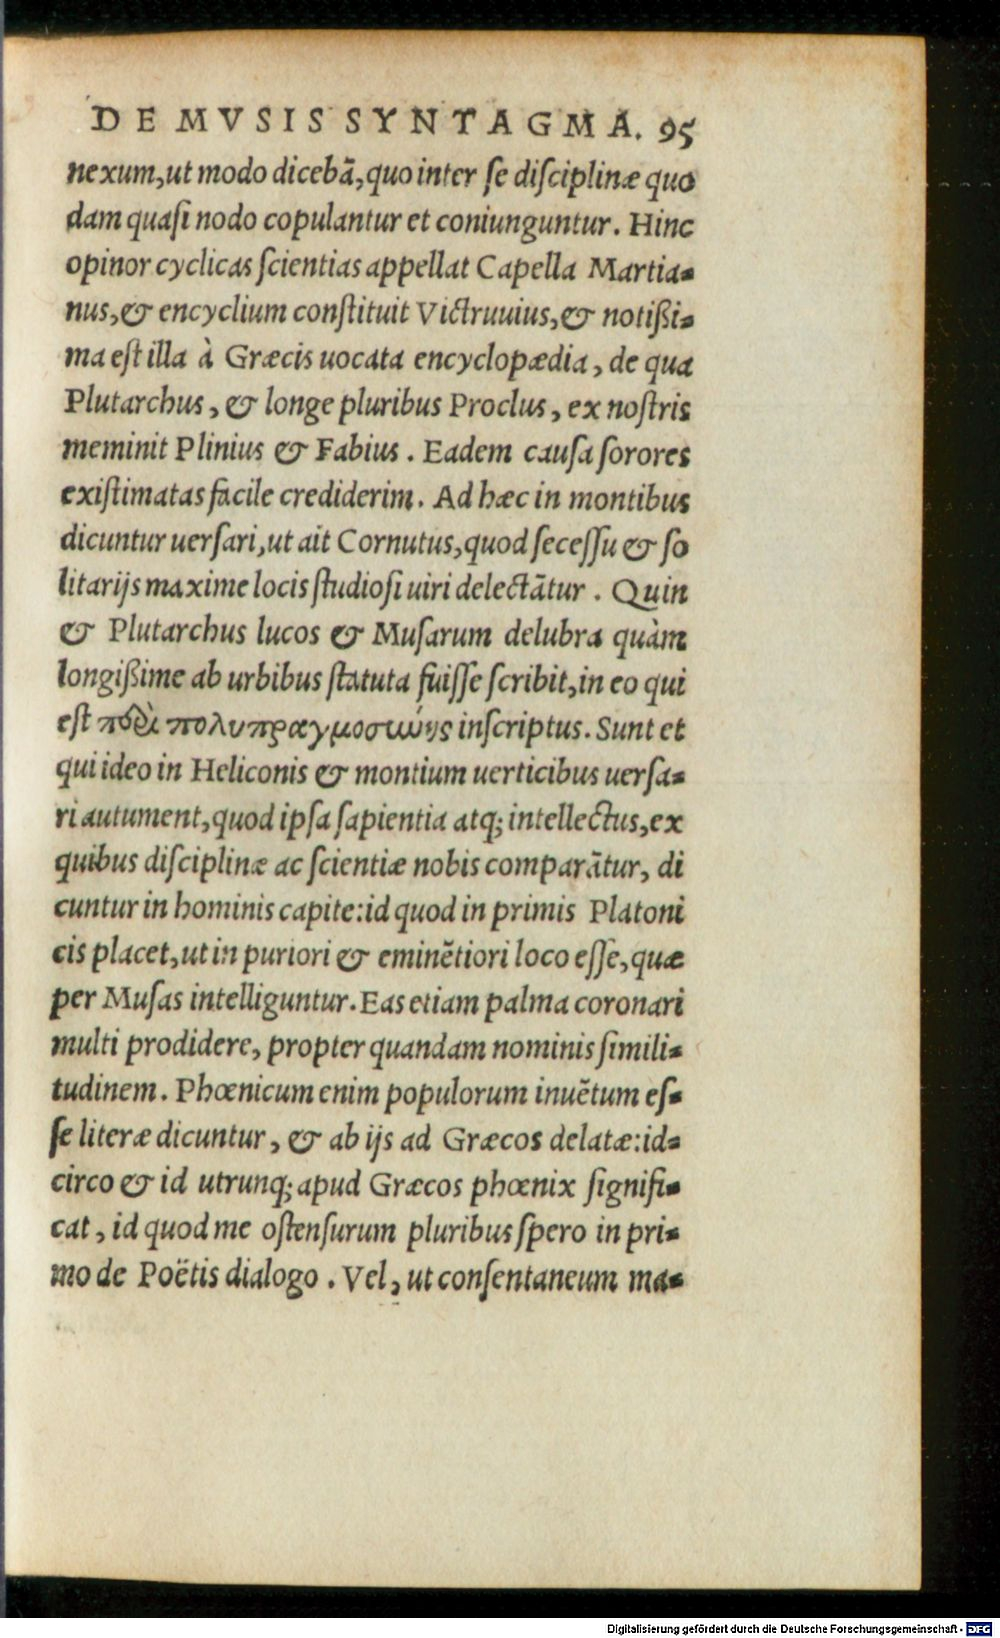 DE MVSIS SYNTAGMA. 95
nexum,ut modo dicebā,quo inter ſe diſciplinæ quo
dam quaſi nodo copulantur et coniunguntur. Hinc
opinor cyclicas ſcientias appellat Capella Martia-
nus,& encyclium conſtituit Victruuius,& notißi-
ma eſt illa à Græcis uocata encyclopædia, de qua
Plutarchus, & longe pluribus Proclus, ex noſtris
meminit Plinius & Fabius. Eadem cauſa ſorores
exiſtimatas facile crediderim. Ad hæc in montibus
dicuntur uerſari,ut ait Cornutus,quod ſeceſſu & ſo
litarijs maxime locis ſtudioſi uiri delectātur. Quin
& Plutarchus lucos & Muſarum delubra quàm
longißime ab urbibus ſtatuta fuiſſe ſcribit,in eo qui
eſt πολυπραγμοσύνης inſcriptus. Sunt et
qui ideo in Heliconis & montium uerticibus uerſa-
ri autument,quod ipſa ſapientia atq; intellectus,ex
quibus diſciplinæ ac ſcientiæ nobis comparātur, di
cuntur in hominis capite:id quod in primis Platoni
cis placet,ut in puriori & eminētiori loco eſſe,quæ
per Muſas intelliguntur. Eas etiam palma coronari
multi prodidere, propter quandam nominis ſimili-
tudinem. Phœnicum enim populorum inuētum eſ-
ſe literæ dicuntur, & ab ijs ad Græcos delatæ:id-
circo & id utrunq; apud Græcos phœnix ſignifi-
cat, id quod me oſtenſurum pluribus ſpero in pri-
mo de Poëtis dialogo. Vel, ut conſentaneum ma-
Digitalisierung gefördert durch die Deutsche Forschungsgemeinschaft - DFG